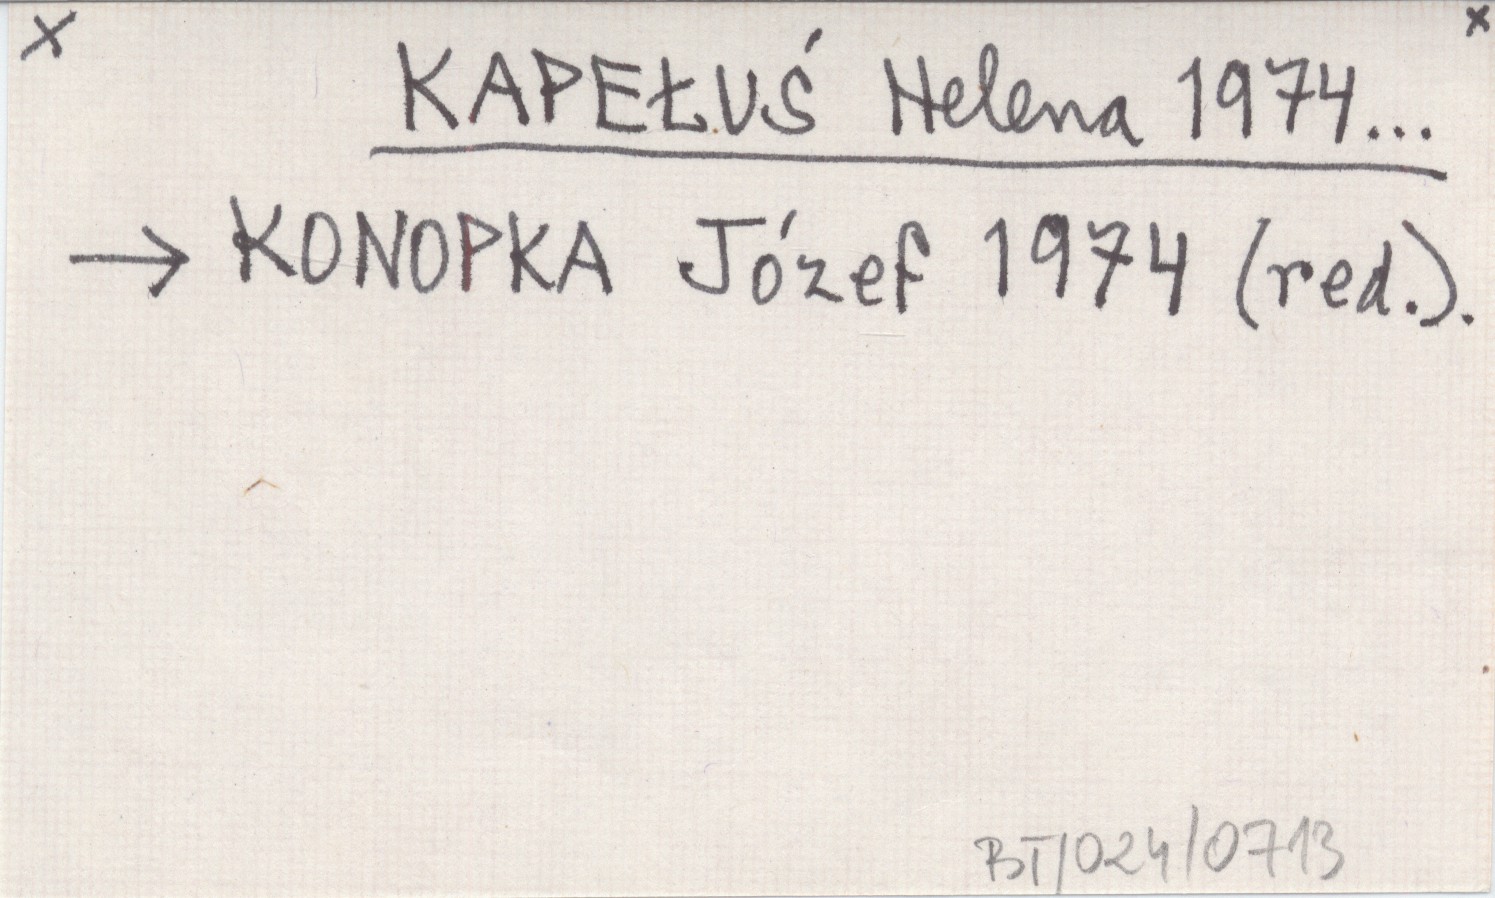 x x
KAPEŁUŚ Helena 1974...
→ KONOPKA Józef 1974 (red.).
BT/024/0713